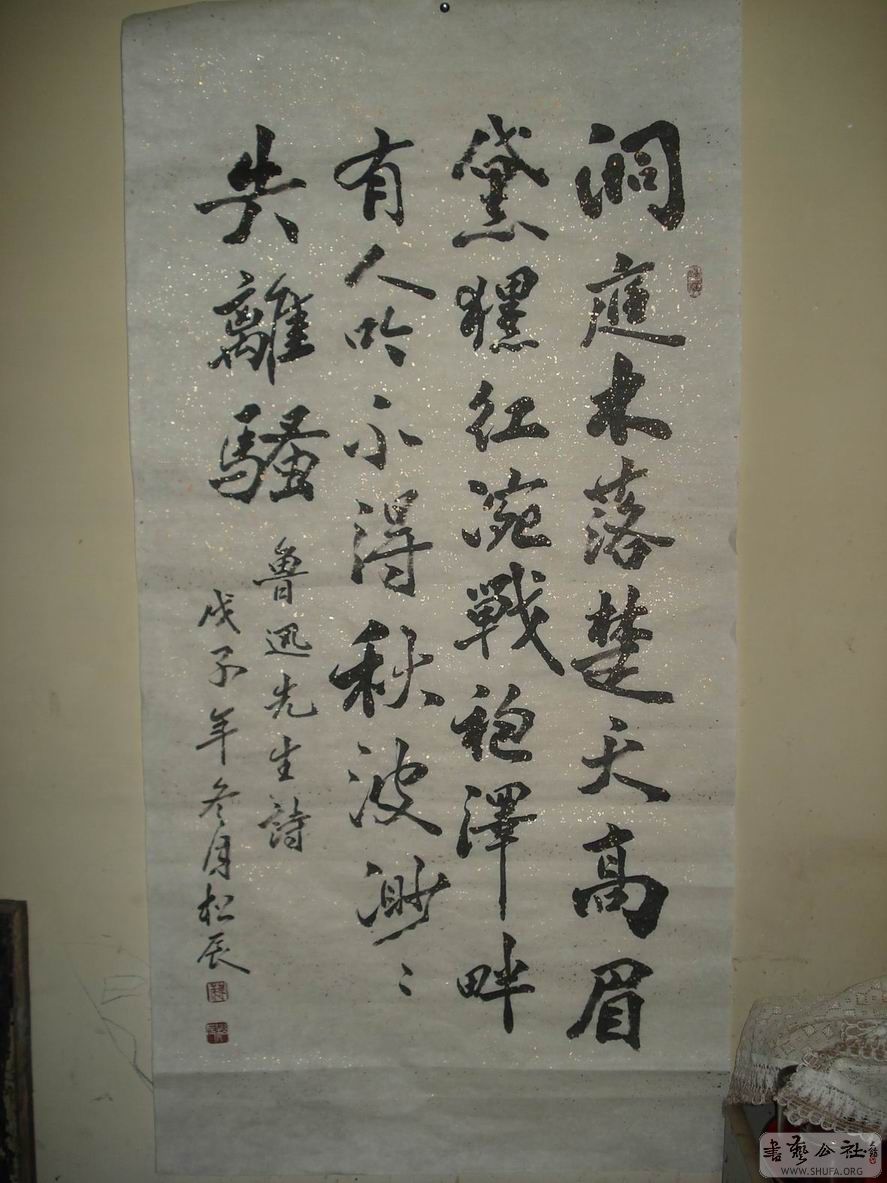 洞庭木落楚天高眉
黛猩红涴戰袍澤畔
有人吟不得秋波渺〻
失離騷
魯迅先生詩
戊子年冬月松辰
書藝公社
WWW.SHUFA.ORG